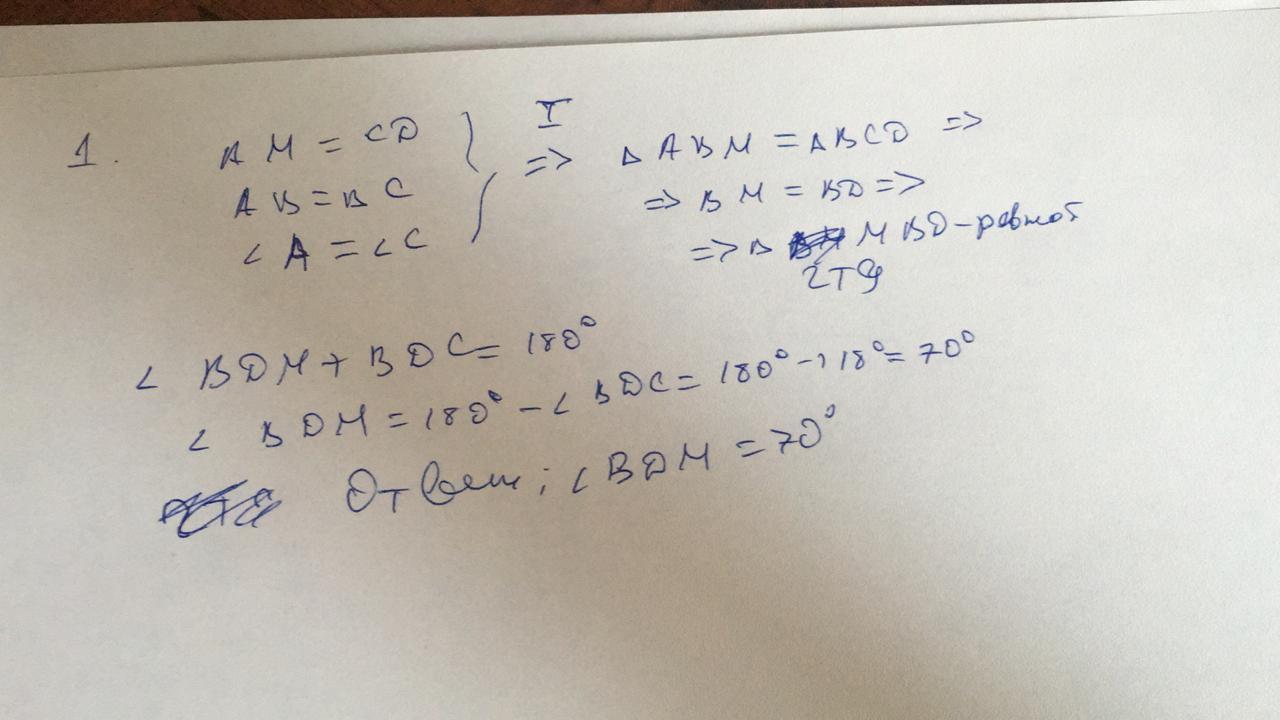 1. AM = CD } I => Δ ABM = Δ BCD =>
AB = BC => BM = BD =>
∠ A = ∠ C => Δ MBD - равноб
ЧТД
∠ BDM + BDC = 180°
∠ BDM = 180° - ∠ BDC = 180° - 118° = 70°
Ответ; ∠ BDM = 70°